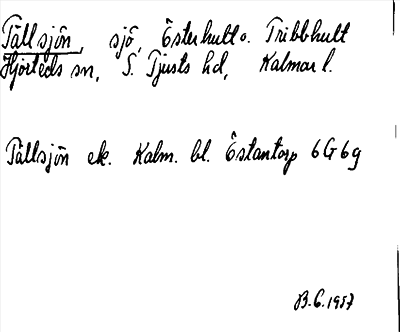 Tällsjön, sjö, Österhult o. Tribbhult
Hjorteds sn, S. Tjusts hd, Kalmar l.
Tällsjön ek. Kalm. bl. Östantorp 6G6g
B.G. 1957